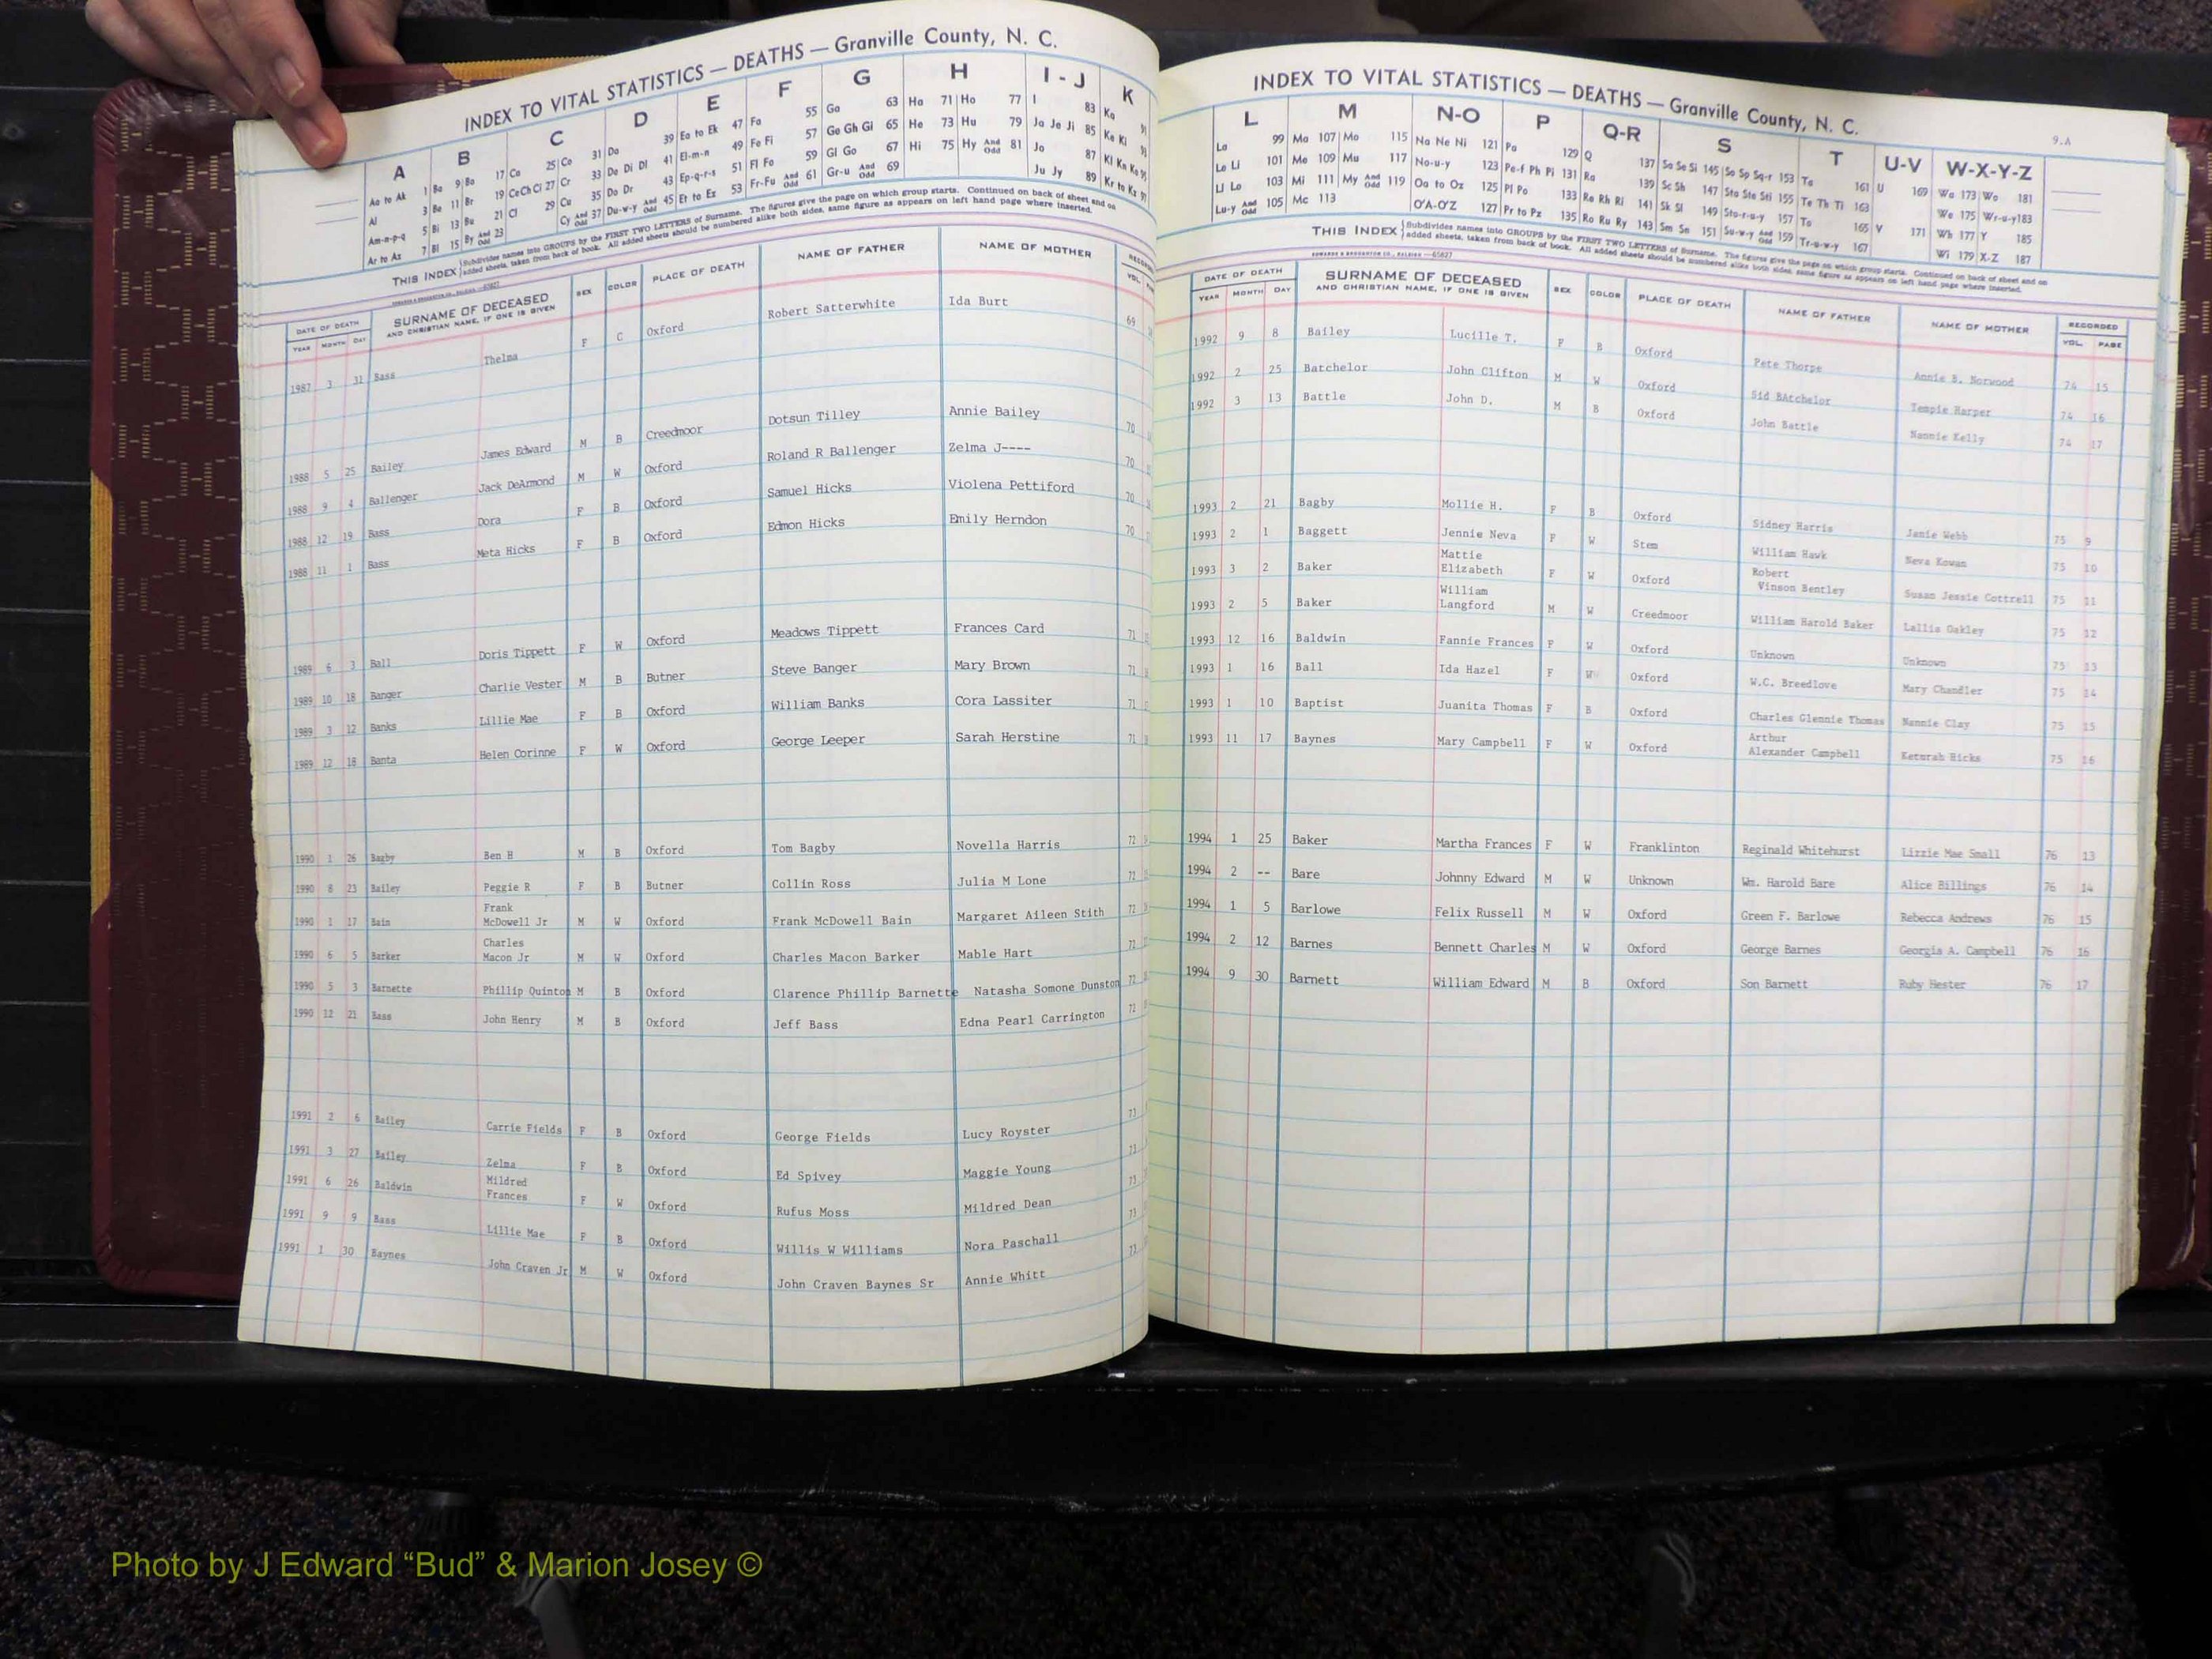 INDEX TO VITAL STATISTICS — DEATHS — Granville County, N. C.
A B C D E F G H I - J K
Aa to Ak 1 Ba 9 Bo 17 Ca 25 Co 31 Da 39 Ea to Ek 47 Fa 55 Ga 63 Ha 71 Ho 77 I 83 Ka
Al 3 Be 11 Br 19 Ce Ch Ci 27 Cr 33 De Di Dl 41 El-m-n 49 Fe Fi 57 Ge Gh Gi 65 He 73 Hu 79 Ja Je Ji 85 Ke Ki
Am-n-p-q 5 Bi 13 Bu 21 Cl 29 Cu 35 Do Dr 43 Ep-q-r-s 51 Fl Fo 59 Gl Go 67 Hi 75 Hy And Odd 81 Jo 87 Kl Kn Ko
Ar to Az 7 Bl 15 By And Odd 23 Cy And Odd 37 Du-w-y And Odd 45 Et to Ez 53 Fr-Fu And Odd 61 Gr-u And Odd 69 Ju Jy 89 Kr to Kz
THIS INDEX Subdivides names into GROUPS by the FIRST TWO LETTERS of Surname. The figures give the page on which group starts. Continued on back of sheet and on
added sheets, taken from back of book. All added sheets should be numbered alike both sides, same figure as appears on left hand page where inserted.
DATE OF DEATH SURNAME OF DECEASED SEX COLOR PLACE OF DEATH NAME OF FATHER NAME OF MOTHER
YEAR MONTH DAY AND CHRISTIAN NAME, IF ONE IS GIVEN VOL.
1987 3 31 Bass Thelma F C Oxford Robert Satterwhite Ida Burt 69
1988 5 25 Bailey James Edward M B Creedmoor Dotsun Tilley Annie Bailey 70
1988 9 4 Ballenger Jack DeArmond M W Oxford Roland R Ballenger Zelma J---- 70
1988 12 19 Bass Dora F B Oxford Samuel Hicks Violena Pettiford 70
1988 11 1 Bass Meta Hicks F B Oxford Edmon Hicks Emily Herndon 70
1989 6 3 Ball Doris Tippett F W Oxford Meadows Tippett Frances Card 71
1989 10 18 Banger Charlie Vester M B Butner Steve Banger Mary Brown 71
1989 3 12 Banks Lillie Mae F B Oxford William Banks Cora Lassiter 71
1989 12 18 Banta Helen Corinne F W Oxford George Leeper Sarah Herstine 71
1990 1 26 Bagby Ben H M B Oxford Tom Bagby Novella Harris 72
1990 8 23 Bailey Peggie R F B Butner Collin Ross Julia M Lone 72
Frank
1990 1 17 Bain McDowell Jr M W Oxford Frank McDowell Bain Margaret Aileen Stith 72
Charles
1990 6 5 Barker Macon Jr M W Oxford Charles Macon Barker Mable Hart 72
1990 5 3 Barnette Phillip Quinton M B Oxford Clarence Phillip Barnette Natasha Somone Dunston 72
1990 12 21 Bass John Henry M B Oxford Jeff Bass Edna Pearl Carrington 72
1991 2 6 Bailey Carrie Fields F B Oxford George Fields Lucy Royster 73
1991 3 27 Bailey Zelma F B Oxford Ed Spivey Maggie Young 73
Mildred
1991 6 26 Baldwin Frances F W Oxford Rufus Moss Mildred Dean 73
1991 9 9 Bass Lillie Mae F B Oxford Willis W Williams Nora Paschall 73
1991 1 30 Baynes John Craven Jr M W Oxford John Craven Baynes Sr Annie Whitt 73
INDEX TO VITAL STATISTICS — DEATHS — Granville County, N. C.
9.A
L M N-O P Q-R S T U-V W-X-Y-Z
La 99 Ma 107 Mo 115 Na Ne Ni 121 Pa 129 Q 137 Sa Se Si 145 So Sp Sq-r 153 Ta 161 U 169 Wa 173 Wo 181
Le Li 101 Me 109 Mu 117 No-u-y 123 Pe-f Ph Pi 131 Ra 139 Sc Sh 147 Sta Ste Sti 155 Te Th Ti 163 We 175 Wr-u-y 183
Ll Lo 103 Mi 111 My And Odd 119 Oa to Oz 125 Pl Po 133 Re Rh Ri 141 Sk Sl 149 Sto-r-u-y 157 To 165 V 171 Wh 177 Y 185
Lu-y And Odd 105 Mc 113 O'A-O'Z 127 Pr to Pz 135 Ro Ru Ry 143 Sm Sn 151 Su-w-y And Odd 159 Tr-u-w-y 167 Wi 179 X-Z 187
THIS INDEX Subdivides names into GROUPS by the FIRST TWO LETTERS of Surname. The figures give the page on which group starts. Continued on back of sheet and on
added sheets, taken from back of book. All added sheets should be numbered alike both sides, same figure as appears on left hand page where inserted.
EDWARDS & BROUGHTON CO., RALEIGH —65827
DATE OF DEATH SURNAME OF DECEASED SEX COLOR PLACE OF DEATH NAME OF FATHER NAME OF MOTHER RECORDED
YEAR MONTH DAY AND CHRISTIAN NAME, IF ONE IS GIVEN VOL. PAGE
1992 9 8 Bailey Lucille T. F B Oxford Pete Thorpe Annie B. Norwood 74 15
1992 2 25 Batchelor John Clifton M W Oxford Sid BAtchelor Tempie Harper 74 16
1992 3 13 Battle John D. M B Oxford John Battle Nannie Kelly 74 17
1993 2 21 Bagby Mollie H. F B Oxford Sidney Harris Janie Webb 75 9
1993 2 1 Baggett Jennie Neva F W Stem William Hawk Neva Kowan 75 10
Mattie Robert
1993 3 2 Baker Elizabeth F W Oxford Vinson Bentley Susan Jessie Cottrell 75 11
William
1993 2 5 Baker Langford M W Creedmoor William Harold Baker Lallis Oakley 75 12
1993 12 16 Baldwin Fannie Frances F W Oxford Unknown Unknown 75 13
1993 1 16 Ball Ida Hazel F W Oxford W.C. Breedlove Mary Chandler 75 14
1993 1 10 Baptist Juanita Thomas F B Oxford Charles Glennie Thomas Nannie Clay 75 15
Arthur
1993 11 17 Baynes Mary Campbell F W Oxford Alexander Campbell Keturah Hicks 75 16
1994 1 25 Baker Martha Frances F W Franklinton Reginald Whitehurst Lizzie Mae Small 76 13
1994 2 -- Bare Johnny Edward M W Unknown Wm. Harold Bare Alice Billings 76 14
1994 1 5 Barlowe Felix Russell M W Oxford Green F. Barlowe Rebecca Andrews 76 15
1994 2 12 Barnes Bennett Charles M W Oxford George Barnes Georgia A. Campbell 76 16
1994 9 30 Barnett William Edward M B Oxford Son Barnett Ruby Hester 76 17
Photo by J Edward “Bud” & Marion Josey ©